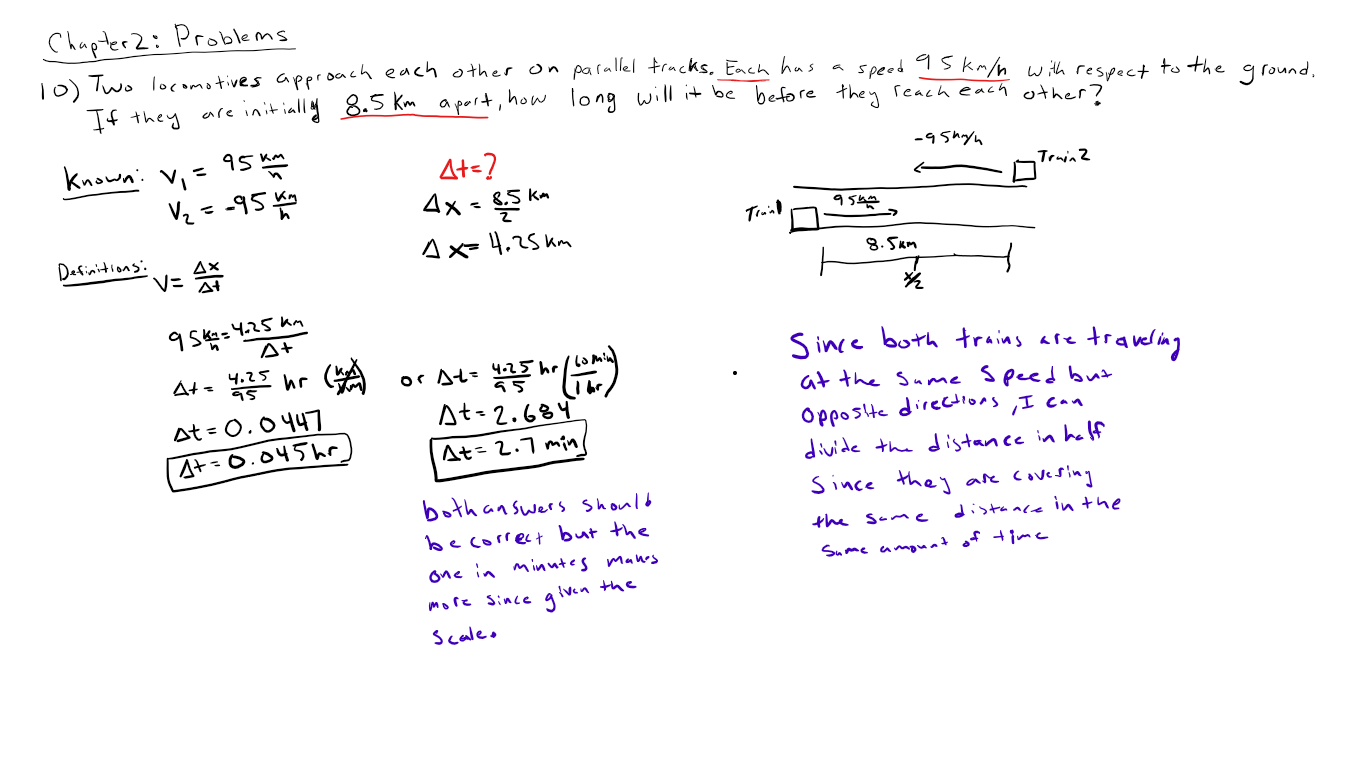 Chapter 2: Problems
10) Two locomotives approach each other on parallel tracks. Each has a speed 95 km/h with respect to the ground.
If they are initially 8.5 km apart, how long will it be before they reach each other?
Known: V₁ = 95 km/h
V₂ = -95 km/h
Δt = ?
Δx = 8.5/2 km
Δx = 4.25 km
-95 km/h
Train 2
Train 1
95 km/h
8.5 km
x/2
Definitions: V = Δx/Δt
95 km/h = 4.25 km/Δt
Δt = 4.25/95 hr (km/km)
Δt = 0.0447
Δt = 0.045 hr
or Δt = 4.25/95 hr (60 min/1 hr)
Δt = 2.684
Δt = 2.7 min
both answers should
be correct but the
one in minutes makes
more since given the
scale.
Since both trains are traveling
at the same speed but
opposite directions, I can
divide the distance in half
since they are covering
the same distance in the
same amount of time